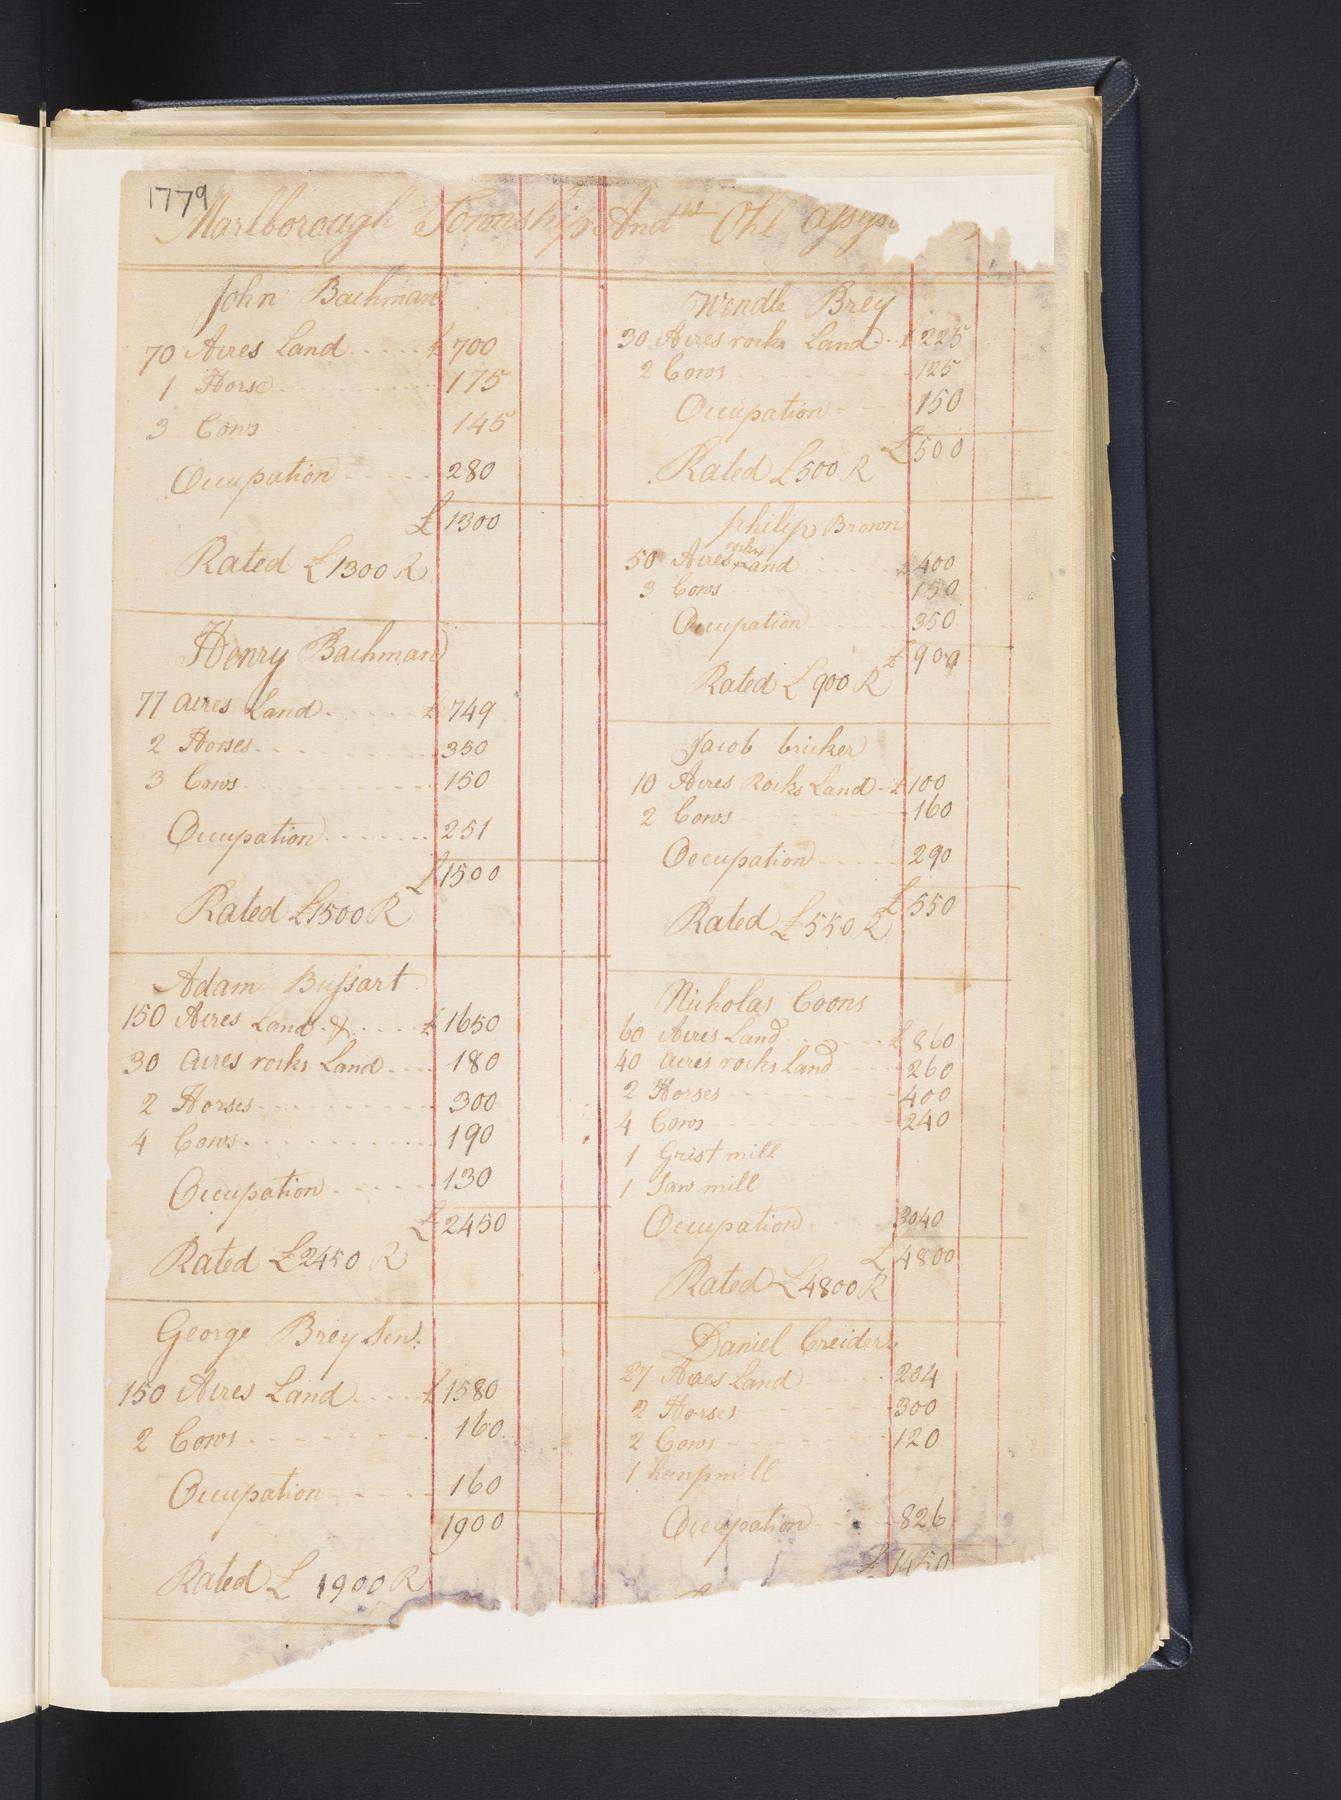 1779
Marlborough Township And.w Ohl Assess
John Bachman
70 Acres Land £ 700
1 Horse 175
3 Cows 145
Occupation 280
£ 1300
Rated £ 1300 R
Henry Bachman
77 acres Land £ 749
2 Horses 350
3 Cows 150
Occupation 251
£ 1500
Rated £1500 R
Adam Bussart
150 Acres Land & £ 1650
30 acres rocks Land 180
2 Horses 300
4 Cows 190
Occupation 130
£ 2450
Rated £2450 R
George Brey Sen.
150 Acres Land £ 1580
2 Cows 160
Occupation 160
1900
Rated £ 1900 R
Wendle Brey
30 Acres rocks Land £ 225
2 Cows 125
Occupation 150
£ 500
Rated £500 R
philip Brown
50 Acres rocks Land £ 400
3 Cows 150
Occupation 350
£ 900
Rated £ 900 R
Jacob bricker
10 Acres Rocks Land £ 100
2 Cows 160
Occupation 290
£ 550
Rated £550 R
Nicholas Coons
60 Acres Land £ 860
40 acres rocks Land 260
2 Horses 400
4 Cows 240
1 Grist mill
1 Saw mill
Occupation 3040
£ 4800
Rated £4800 R
Daniel Creider
27 Acres Land 204
2 Horses 300
2 Cows 120
1 hempmill
Occupation 826
£ 1450